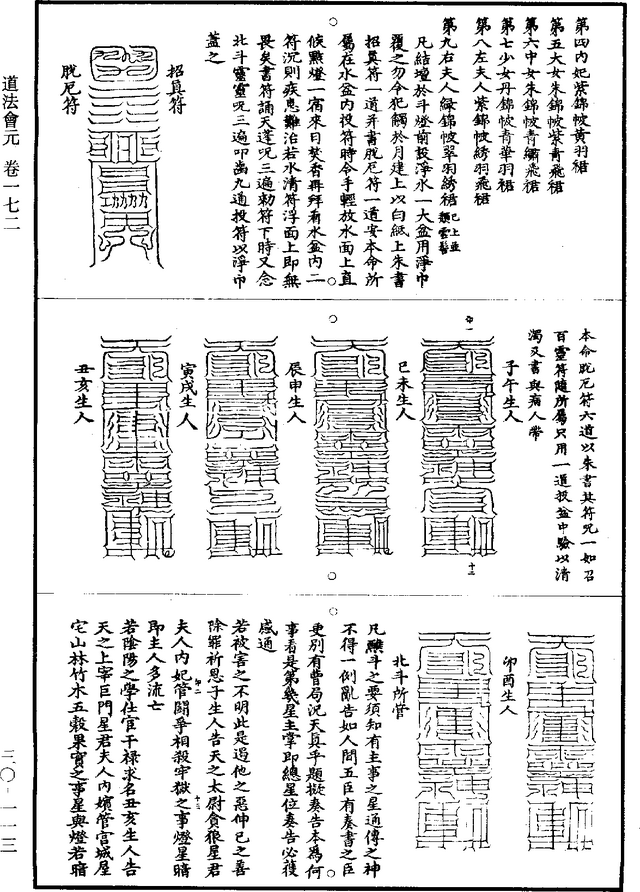 道法會元 卷一七二
三〇－一一三
第四內妃紫錦帔黃羽裙
第五大女朱錦帔紫青飛裙
第六中女朱錦帔青繡飛裙
第七少女丹錦帔青華羽裙
第八左夫人紫錦帔綉羽飛裙
第九右夫人綠錦帔翠羽綉裙已上並類雲髻
凡結壇於斗燈前設淨水一大盆用淨巾
覆之勿令犯觸於月建上以白紙上朱書
招真符一道并書脫厄符一道安本命所
屬在水盆內投符時令手輕放水面上直
候點燈一宿來日焚香再拜看水盆內二
符沉則疾患難治若水清符浮面上即無
畏矣書符誦天蓬呪三遍勑符下時又念
北斗靈靈呪三遍叩齒九通投符以淨巾
蓋之
招真符
脫厄符
本命脫厄符六道以朱書其符呪一如召
百靈符隨所屬只用一道投盆中驗以清
濁又書與病人帶
子午生人
巳未生人
辰申生人
寅戌生人
丑亥生人
卯酉生人
北斗所管
凡醮斗之要須知有主事之星通傳之神
不得一例亂告如人間五臣有奏書之臣
更別有曹局況天真乎題擬奏告本為何
事看是第幾星主掌即總星位奏告必獲
感通
若被害之不明此是過他之惡伸己之善
除罪祈恩子生人告天之太尉貪狼星君
夫人內妃管鬪爭相殺牢獄之事燈星暗
即主人多流亡
若陰陽之學仕官干祿求名丑亥生人告
天之上宰巨門星君夫人內嬪管官城屋
宅山林竹木五穀果實之事星與燈若暗